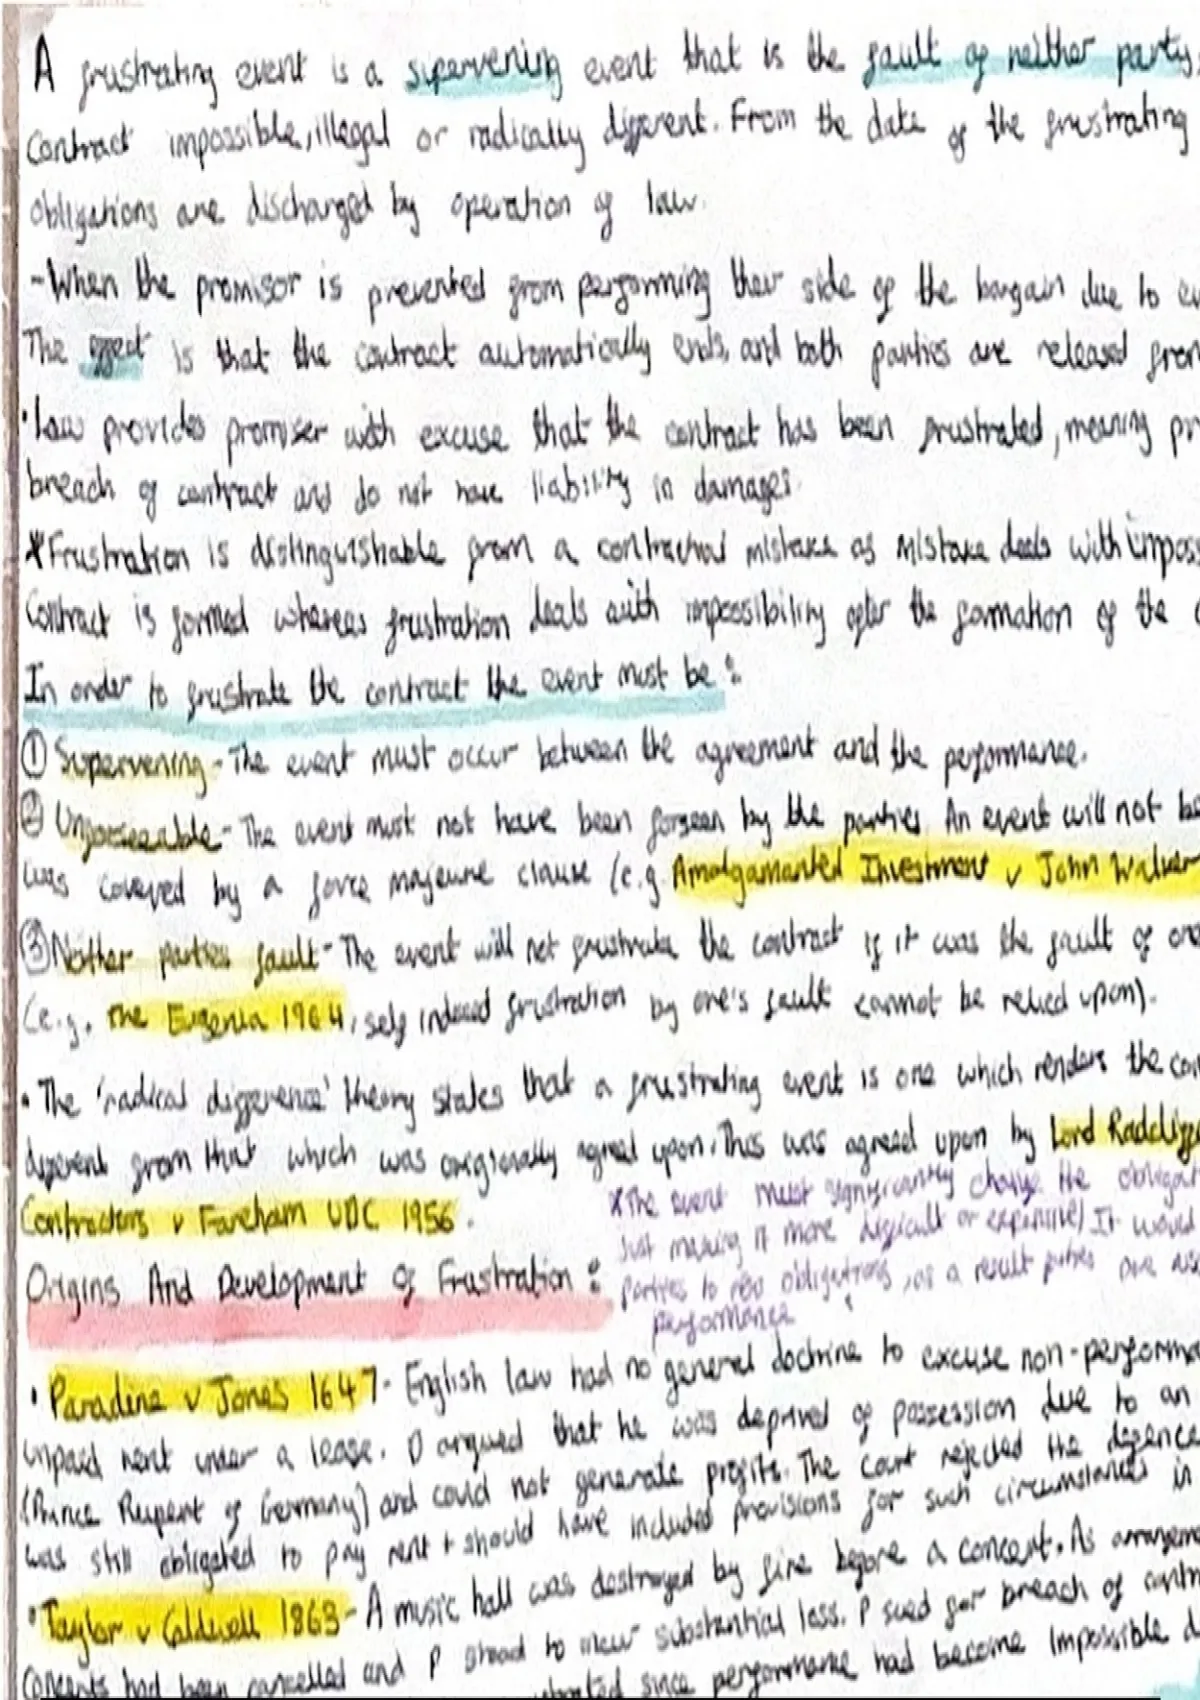 A frustrating event is a supervening event that is the fault of neither party,
contract impossible, illegal or radically different. From the date of the frustrating
obligations are discharged by operation of law.
-When the promisor is prevented from performing their side of the bargain due to
The effect is that the contract automatically ends, and both parties are released from
•law provides promiser with excuse that the contract has been frustrated, meaning
breach of contract and do not have liability in damages.
*Frustration is distinguishable from a contractual mistake as mistake deals with
Contract is formed whereas frustration deals with impossibility after the formation of the
In order to frustrate the contract the event must be:
① Supervening - The event must occur between the agreement and the performance.
② Unforseeable - The event must not have been forseen by the parties. An event will not be
was covered by a force majeure clause (e.g. Amalgamanted Investment v John Walker
③ Neither parties fault - The event will not frustrate the contract if it was the fault of
(e.g. The Eugenia 1964, self induced frustration by one's fault cannot be relied upon).
• The 'radical difference' theory states that a frustrating event is one which renders the
different from that which was originally agreed upon. This was agreed upon by Lord
Contractors v Fareham UDC 1956.
*The event must significantly change the
just making it more difficult or expensive) It would
parties to obligations, as a result parties are
performance
Origins And Development of Frustration:
• Paradine v Jones 1647 - English law had no general doctrine to excuse
unpaid rent under a lease. D argued that he was deprived of possession due to an
(Prince Rupert of Germany) and could not generate profits. The court rejected the defence
was still obligated to pay rent + should have included provisions for such circumstances in
• Taylor v Caldwell 1863 - A music hall was destroyed by fire before a concert. As
Concerts had been cancelled and P stood to incur substantial loss. P sued for breach of
since performance had become impossible